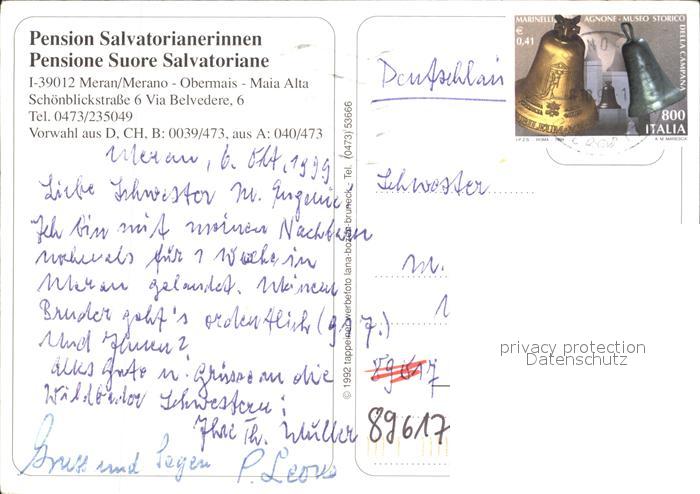 Pension Salvatorianerinnen
Pensione Suore Salvatoriane
I-39012 Meran/Merano - Obermais - Maia Alta
Schönblickstraße 6 Via Belvedere, 6
Tel. 0473/235049
Vorwahl aus D, CH, B: 0039/473, aus A: 040/473
Meran, 6. Okt. 1999
Liebe Schwester M. Eugenie!
Ich bin mit meinen Nachbarn
nochmals für 1 Woche in
Meran gelandet. Meinem
Bruder geht's ordentlich (
Und Ihnen?
Alles Gute u. Grüsse an die
Wildbader Schwestern!
Ihre Th. Müller
Gruss und Segen P. Leons
© 1992 tappeiner werbefoto lana-bozen-bruneck - Tel. (0473) 53666
MARINELLI AGNONE - MUSEO STORICO DELLA CAMPANA
€ 0,41
800
ITALIA
I.P.Z.S. - ROMA - 1999
A. M. MARESCA
Deutschlan
Schwester
M.
89617
privacy protection
Datenschutz